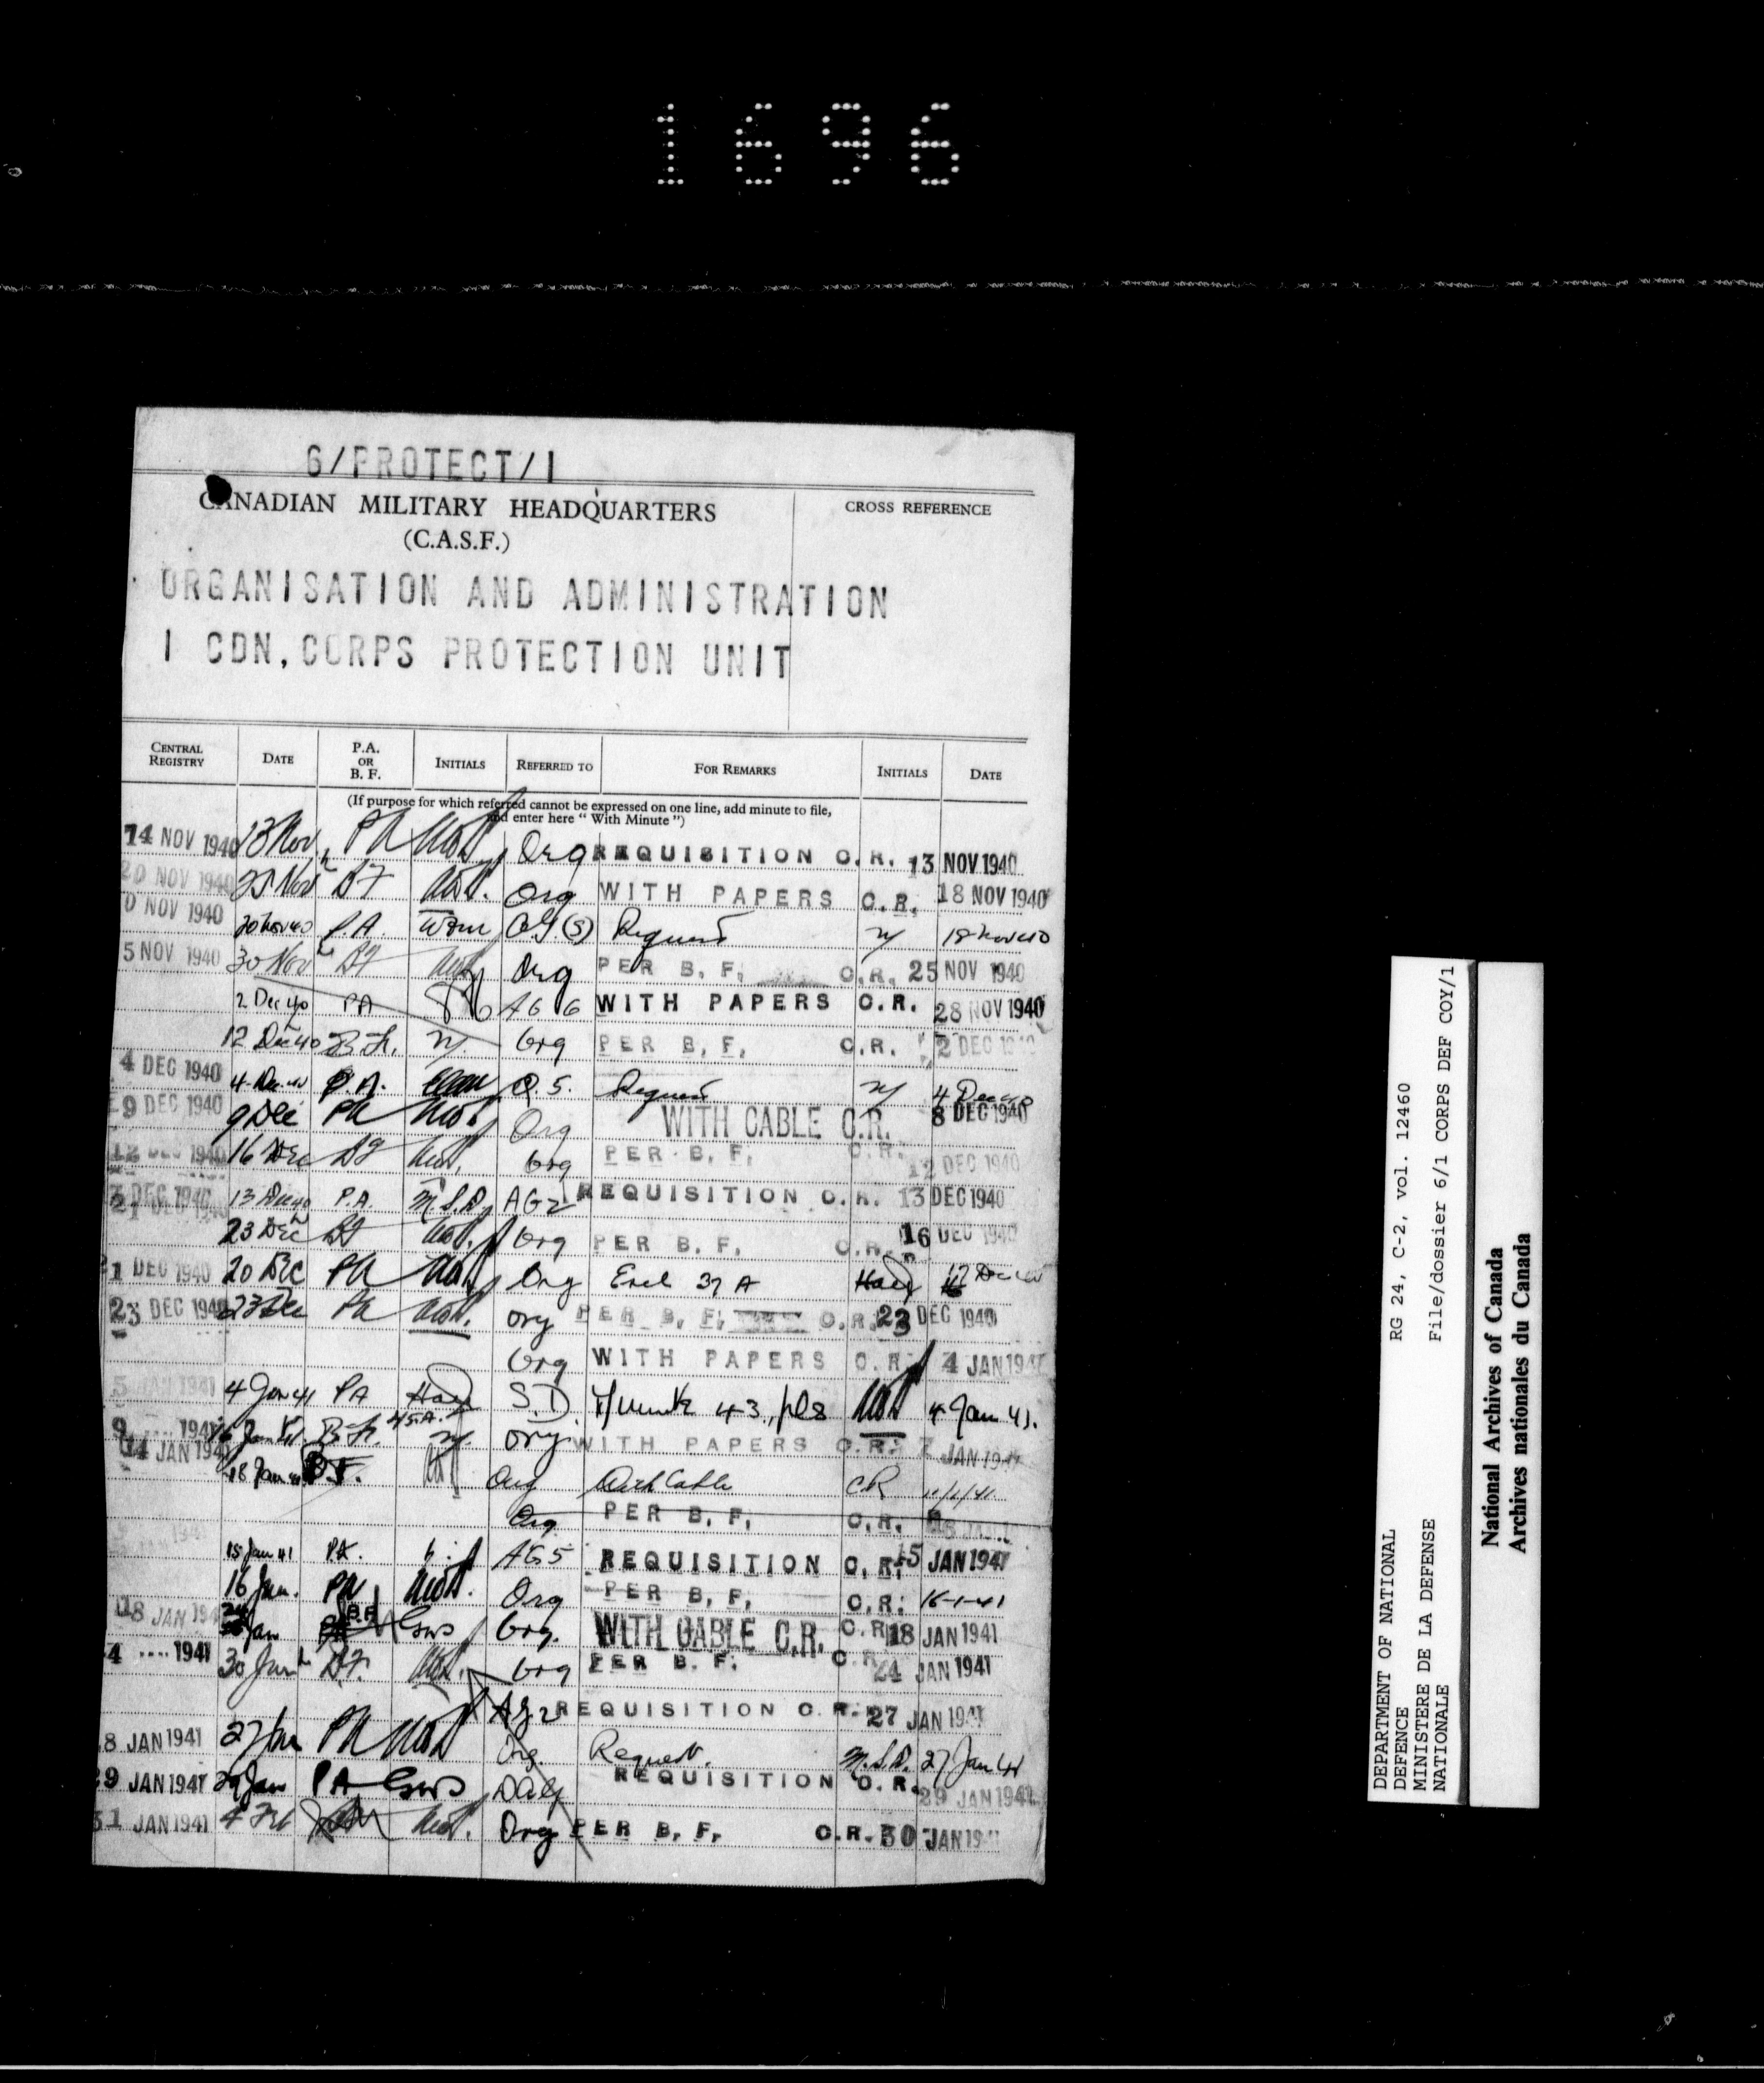 1696
6/PROTECT/1
CANADIAN MILITARY HEADQUARTERS
(C.A.S.F.)
CROSS REFERENCE
ORGANISATION AND ADMINISTRATION
1 CDN. CORPS PROTECTION UNIT
CENTRAL REGISTRY DATE P.A. OR B. F. INITIALS REFERRED TO FOR REMARKS INITIALS DATE
(If purpose for which referred cannot be expressed on one line, add minute to file,
and enter here " With Minute ")
14 NOV 1940 13 Nov PA Org REQUISITION C.R. 13 NOV 1940
20 NOV 1940 Nov BF Org WITH PAPERS C.R. 18 NOV 1940
0 NOV 1940 20 Nov 40 P.A. AG(S) Request 18 Nov 40
5 NOV 1940 30 Nov BF Org PER B. F. C.R. 25 NOV 1940
2 Dec 40 PA AG 6 WITH PAPERS C.R. 28 NOV 1940
12 Dec 40 B.F. Org PER B. F. C.R. 2 DEC 1940
4 DEC 1940 4 Dec 40 P.A. Q.5. Request 4 Dec 40
9 DEC 1940 9 Dec PA Org WITH CABLE C.R. 8 DEC 1940
12 DEC 1940 16 Dec BF Org PER B. F. C.R. 12 DEC 1940
DEC 1940 13 Dec 40 P.A. M.S.D. AG2 REQUISITION C.R. 13 DEC 1940
21 DEC 1940 23 Dec BF Org PER B. F. C.R. 16 DEC 1940
1 DEC 1940 20 Dec PA Org Encl 37 A 17 Dec
23 DEC 1940 23 Dec PA Org PER B. F. C.R. 23 DEC 1940
Org WITH PAPERS C.R. 4 JAN 1941
5 JAN 1941 4 Jan 41 PA S.D. 43, pls 4 Jan 41.
9 1941 16 Jan 41 B.F. 45A. Org WITH PAPERS C.R. 7 JAN 1941
14 JAN 1941 18 Jan 41 B.F. Org With Cable CR 11/1/41.
Org PER B. F. C.R.
15 Jan 41 PA. AG5 REQUISITION C.R. 15 JAN 1941
16 Jan. PA Org PER B. F. C.R. 16-1-41
18 JAN 194 Jan B.F. Org. WITH CABLE C.R. C.R. 18 JAN 1941
4 1941 30 Jan BF. Org PER B. F. C.R. 24 JAN 1941
AG2 REQUISITION C.R. 27 JAN 1941
8 JAN 1941 27 Jan PA Org Request. M.S.D. 27 Jan 41
29 JAN 1941 29 Jan PA REQUISITION C.R. 29 JAN 1941
31 JAN 1941 4 Feb Org PER B. F. C.R. 30 JAN 19
DEPARTMENT OF NATIONAL
DEFENCE
MINISTERE DE LA DEFENSE
NATIONALE
RG 24, C-2, vol. 12460
File/dossier 6/1 CORPS DEF COY/1
National Archives of Canada
Archives nationales du Canada